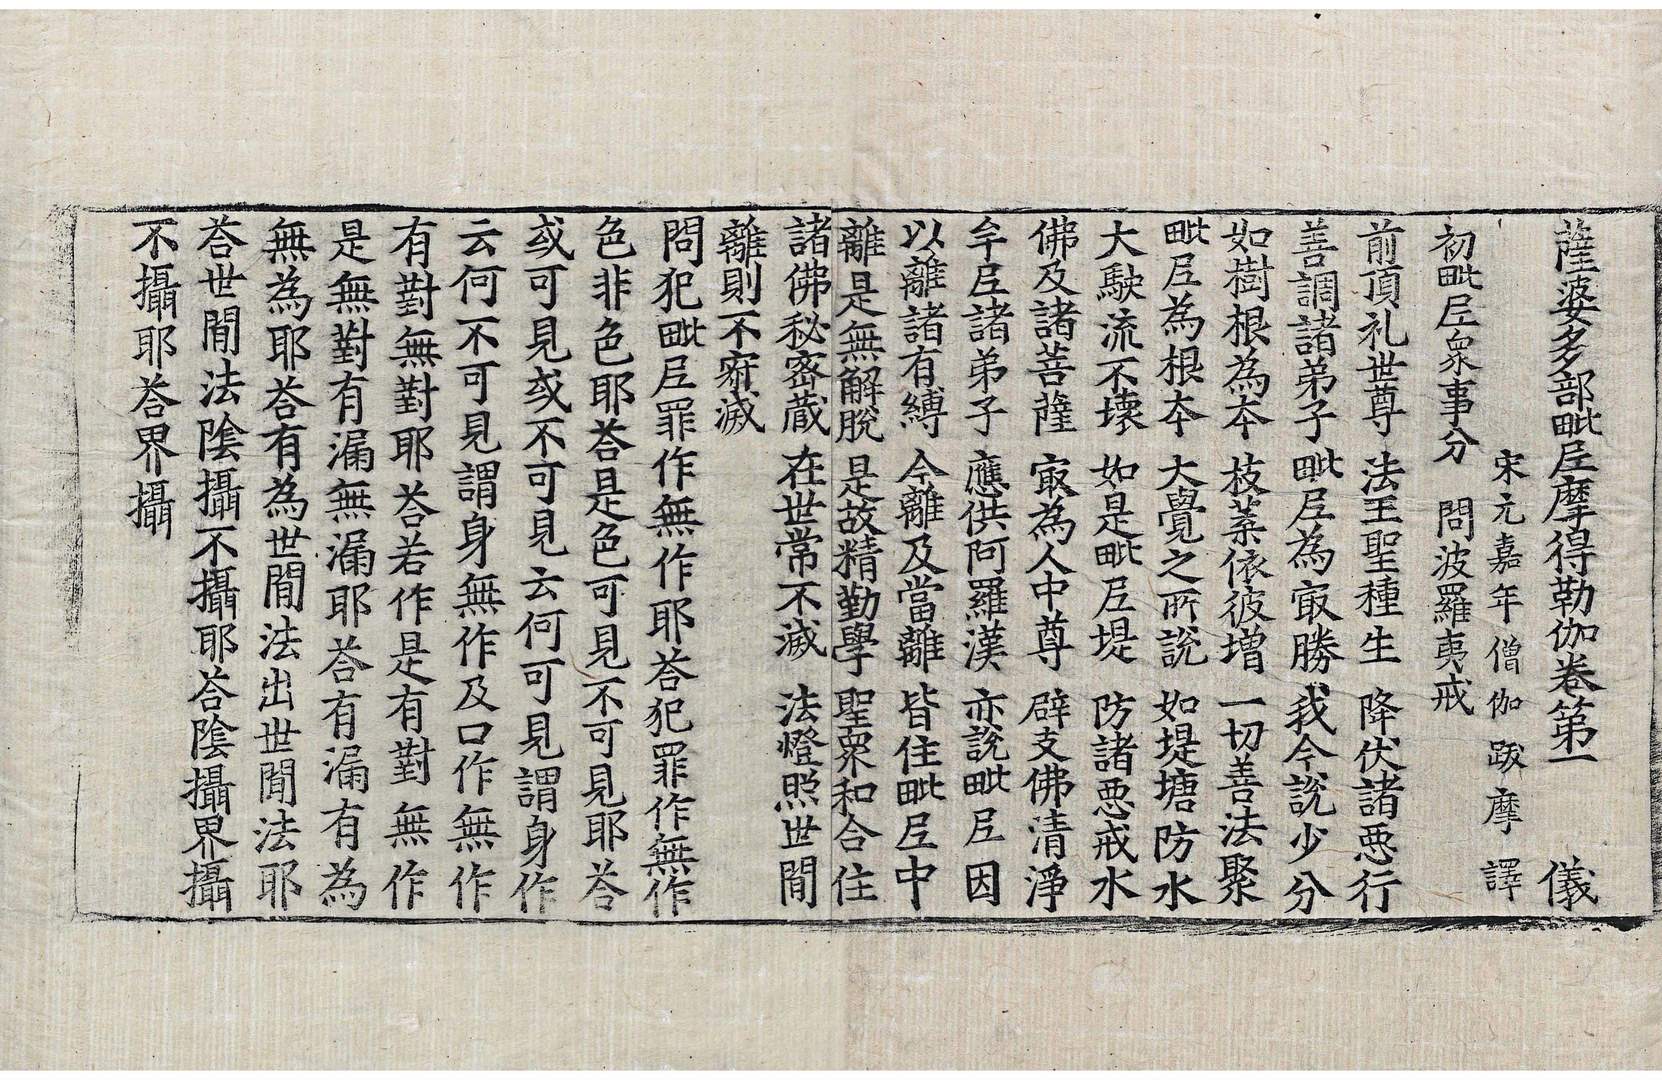 薩婆多部毗尼摩得勒伽卷第一　儀
宋元嘉年僧伽跋摩譯
初毗尼衆事分　問波羅夷戒
前頂礼世尊　法王聖種生　降伏諸惡行
善調諸弟子　毗尼為㝡勝　我今說少分
如樹根為本　枝葉依彼增　一切善法聚
毗尼為根本　大覺之所說　如堤塘防水
大駛流不壞　如是毗尼堤　防諸惡戒水
佛及諸菩薩　㝡為人中尊　辟支佛清淨
牟尼諸弟子　應供阿羅漢　亦說毗尼因
以離諸有縛　今離及當離　皆住毗尼中
離是無解脫　是故精勤學　聖衆和合住
諸佛秘密蔵　在世常不滅　法燈照世間
離則不㝡滅
問犯毗尼罪作無作耶荅犯罪作無作
色非色耶荅是色可見不可見耶荅
或可見或不可見云何可見謂身作
云何不可見謂身無作及口作無作
有對無對耶荅若作是有對無作
是無對有漏無漏耶荅有漏有為
無為耶荅有為世間法出世間法耶
荅世間法陰攝不攝耶荅陰攝界攝
不攝耶荅界攝